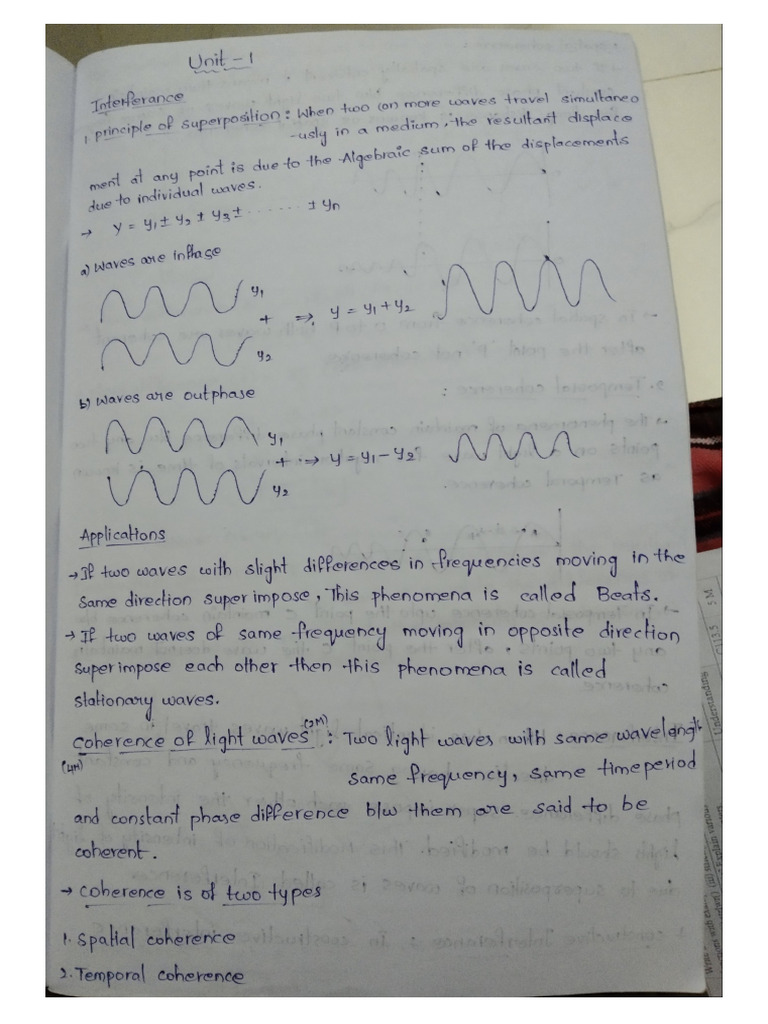 Unit - 1
Interferance
1, principle of superposition : When two (or) more waves travel simultaneo
-usly in a medium, the resultant displace
ment at any point is due to the Algebraic sum of the displacements
due to individual waves.
→ Y = y₁ ± y₂ ± y₃ ± ........ ± yn
a) Waves are inphase
y₁
+ ⇒ y = y₁ + y₂
y₂
b) Waves are outphase
y₁
+ → y = y₁ - y₂
y₂
Applications
→ If two waves with slight differences in frequencies moving in the
same direction superimpose, This phenomena is called Beats.
→ If two waves of same frequency moving in opposite direction
superimpose each other then this phenomena is called
stationary waves.
coherence of light waves (2M) : Two light waves with same wavelength
(4M) same frequency, same timeperiod
and constant phase difference b/w them are said to be
coherent.
→ coherence is of two types
1. Spatial coherence
2. Temporal coherence